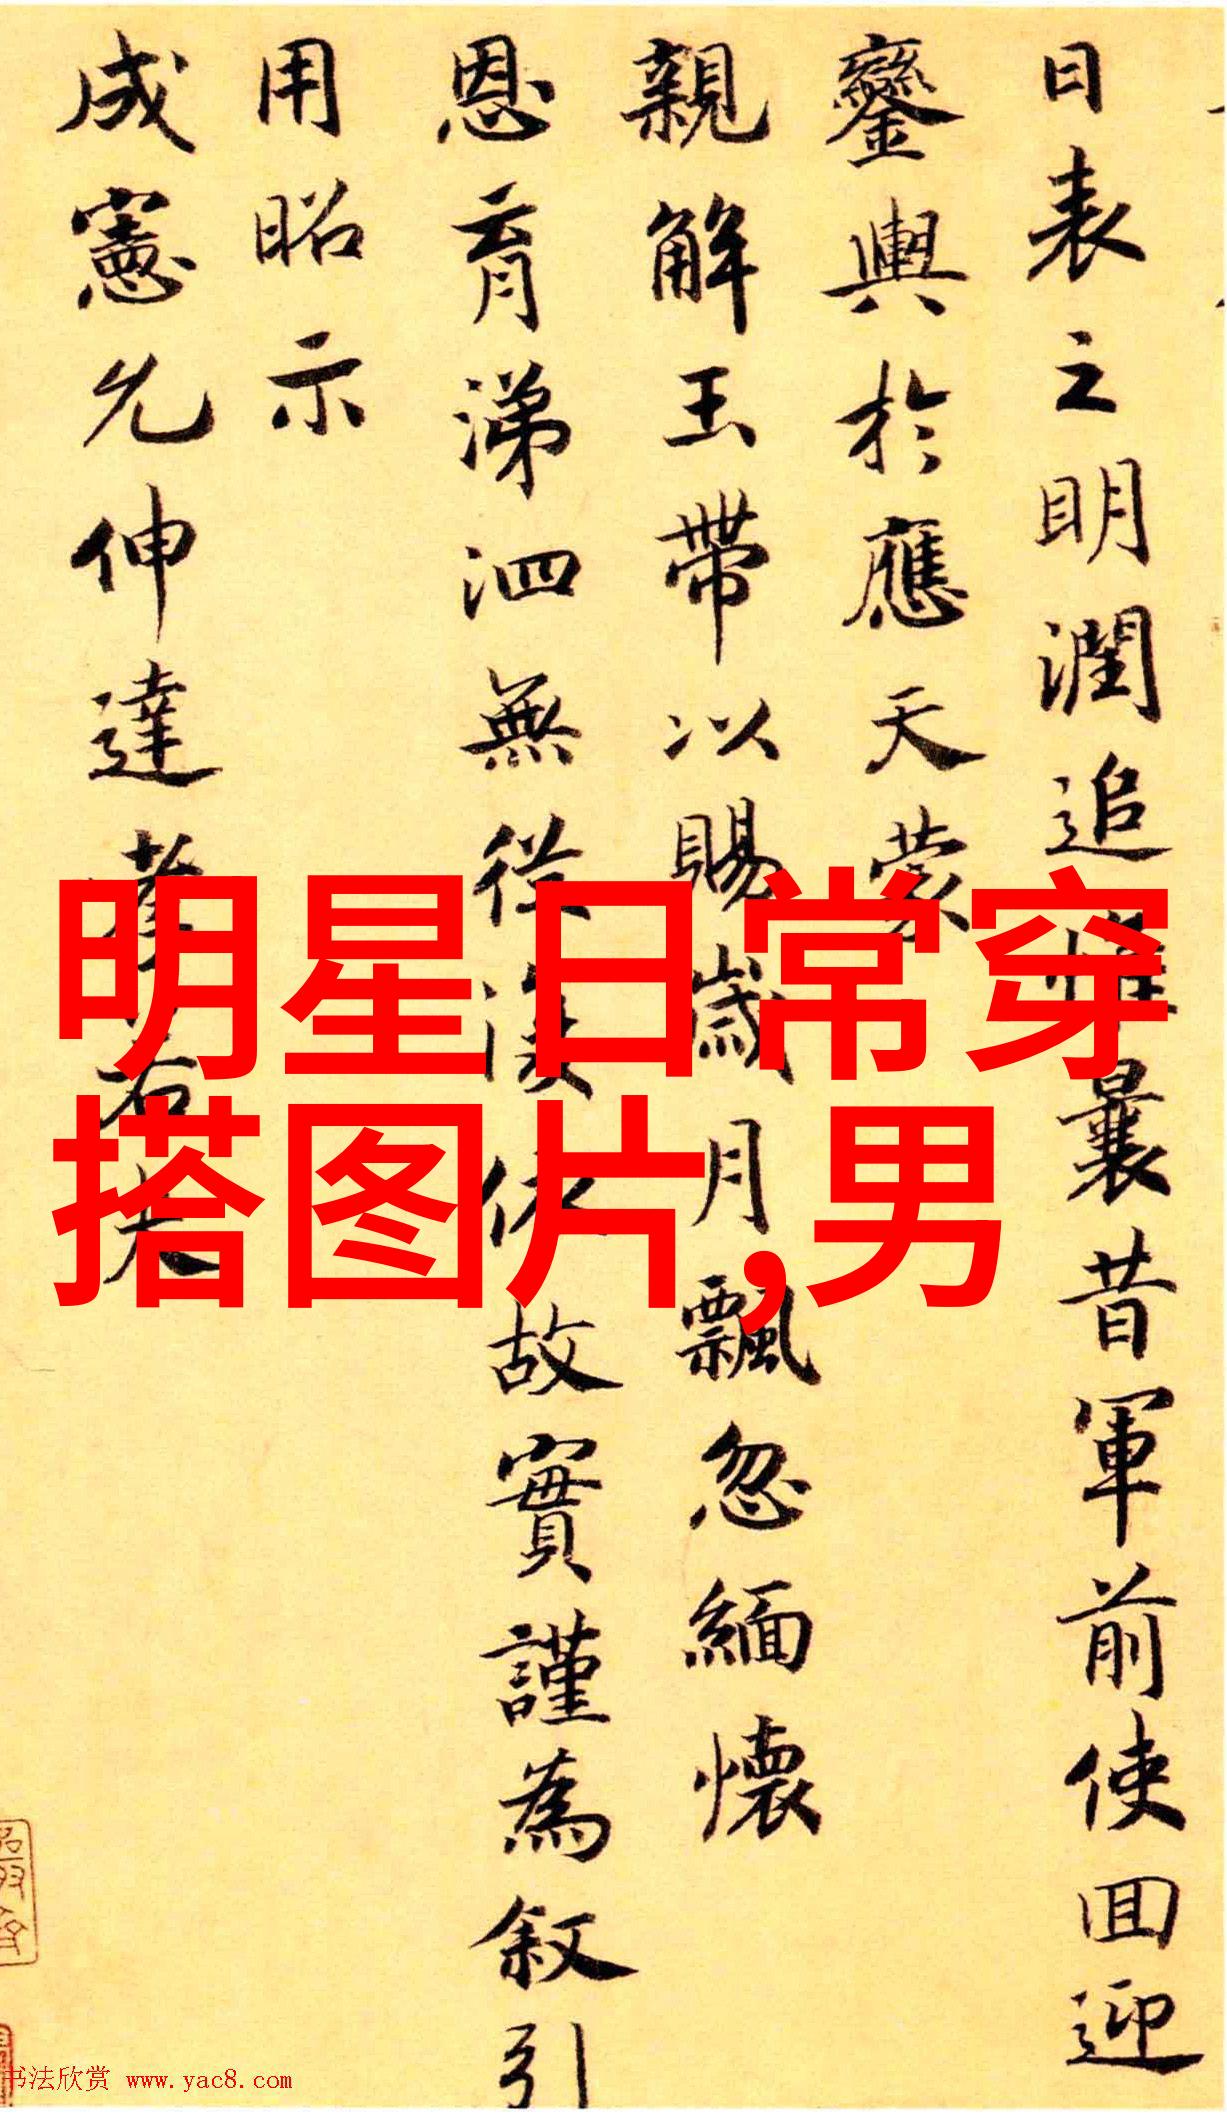 日表之明潤追惟曩昔軍前使回迎
鑾輿於應天蒙
親解玉帶以賜歲月飄忽緬懷
恩育涕泗無從湊依故實謹為叙引
用昭示
成憲允伸達孝若夫
明星日常穿
搭图片,男
书法欣赏 www.yac8.com